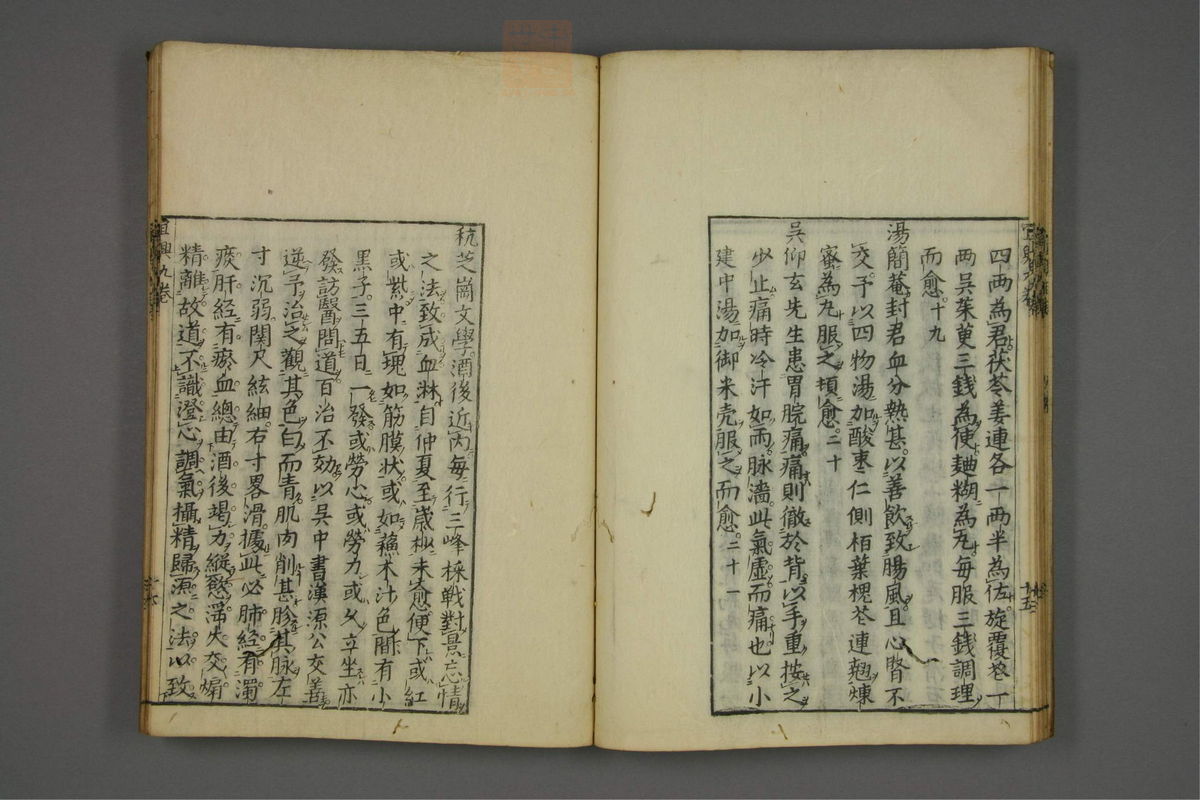 四兩為君茯苓姜連各一兩半為佐旋覆花一
兩吳茱萸三錢為使麯糊為丸每服三錢調理
而愈十九
湯簡菴封君血分熱甚以善飲致腸風且心腎不
交予以四物湯加酸枣仁側栢葉槐花連翹煉
蜜為丸服之頓愈二十
吳仰玄先生患胃脘痛痛則徹於背以手重按之
少止痛時冷汗如雨脉濇此氣虛而痛也以小
建中湯加御米壳服之而愈二十一
秔芝崗文學酒後近內每行三峰採戰對景忘情
之法致成血淋自仲夏至歲秋未愈便下或紅
或紫中有塊如筋膜狀或如蘓木汁色間有小
黑子三五日一發或勞心或勞力或久立坐亦
發訪醫問道百治不効以吳中書漢源公交善
逆予治之觀其色白而青肌肉削甚胗其脉左
寸沉弱關尺絃細右寸畧滑據此必肺經有濁
痰肝經有瘀血總由酒後竭力縱慾淫失交媾
精離故道不識澄心調氣攝精歸源之法以致
宜興九卷
十五
十六